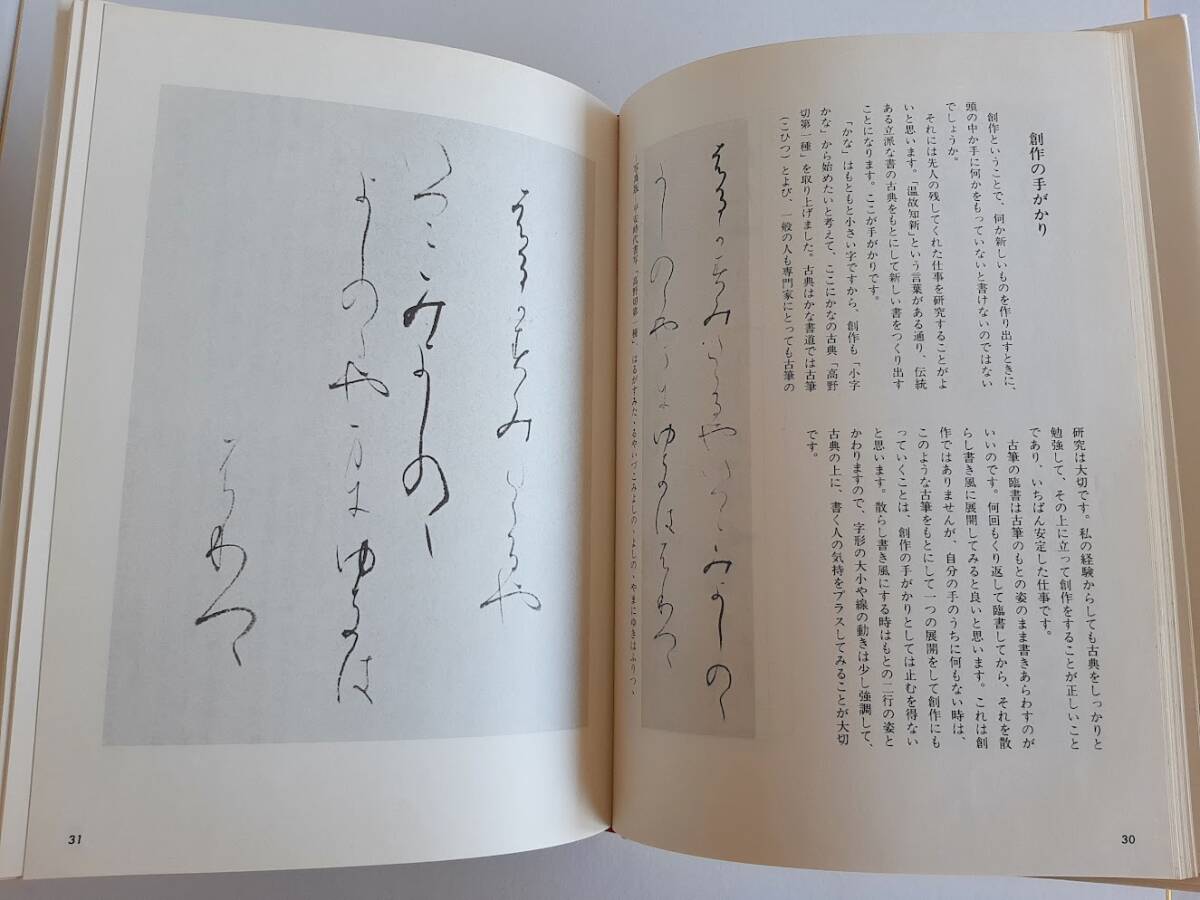 創作の手がかり
創作ということで、何か新しいものを作り出すときに、
頭の中か手に何かをもっていないと書けないのではない
でしょうか。
それには先人の残してくれた仕事を研究することがよ
いと思います。「温故知新」という言葉がある通り、伝統
ある立派な書の古典をもとにして新しい書をつくり出す
ことになります。ここが手がかりです。
「かな」はもともと小さい字ですから、創作も「小字
かな」から始めたいと考えて、ここにかなの古典「高野
切第一種」を取り上げました。古典はかな書道では古筆
(こひつ)とよび、一般の人も専門家にとっても古筆の
研究は大切です。私の経験からしても古典をしっかりと
勉強して、その上に立って創作をすることが正しいこと
であり、いちばん安定した仕事です。
古筆の臨書は古筆のもとの姿のまま書きあらわすのが
いいのです。何回もくり返して臨書してから、それを散
らし書き風に展開してみると良いと思います。これは創
作ではありませんが、自分の手のうちに何もない時は、
このような古筆をもとにして一つの展開をして創作にも
っていくことは、創作の手がかりとしては止むを得ない
と思います。散らし書き風にする時はもとの二行の姿と
かわりますので、字形の大小や線の動きは少し強調して、
古典の上に、書く人の気持をプラスしてみることが大切
です。
30
はるがすみたゝるやいづこみよしのゝ
よしのゝやまにゆきはふりつゝ
写真版・平安時代書写「高野切第一種」 はるがすみたゝるやいづこみよしのゝよしのゝやまにゆきはふりつゝ
はるかすみたてるや
いつこみよしのゝ
よしのゝやまにゆきは
ふりつゝ
31